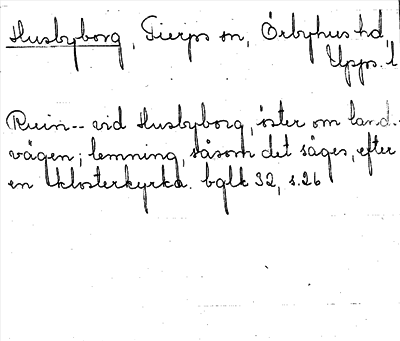 Husbyborg, Tierps sn, Örbyhus hd,
Upps. l
Ruin-- vid Husbyborg, öster om land-
vägen; lemning, såsom det säges, efter
en klosterkyrka. bglk 32, s.26